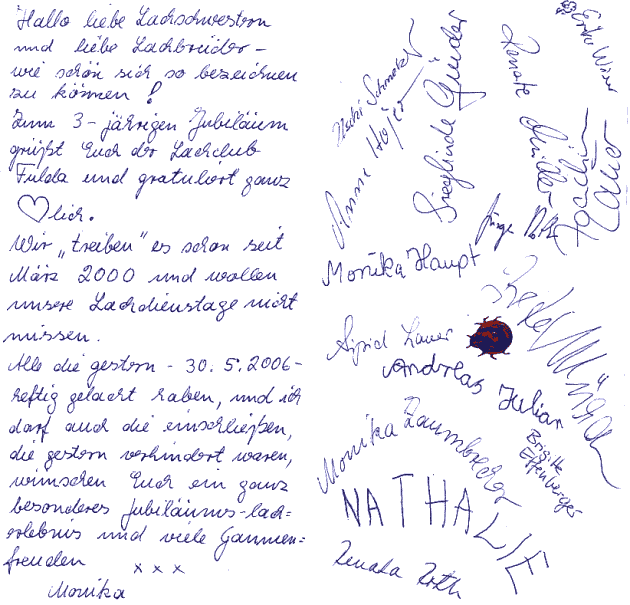 Hallo liebe Lachschwestern
und liebe Lachbrüder -
wie schön sich so bezeichnen
zu können!
Zum 3-jährigen Jubiläum
grüßt Euch der Lachclub
Fulda und gratuliert ganz
♡lich.
Wir "treiben" es schon seit
März 2000 und wollen
unsere Lachdienstage nicht
missen.
Alle die gestern - 30.5.2006-
heftig gelacht haben, und ich
darf auch die einschließen,
die gestern verhindert waren,
wünschen Euch ein ganz
besonderes Jubiläums-lach=
erlebnis und viele Gaumen=
freuden x x x
Monika
Anni
Sieglinde
Renate
Joachim Lauer
Monika Haupt
Sigrid Lauer
Andreas Julian
Monika Zaumbrecher
Brigitte
Effenberger
NATHALIE
Renata Roth